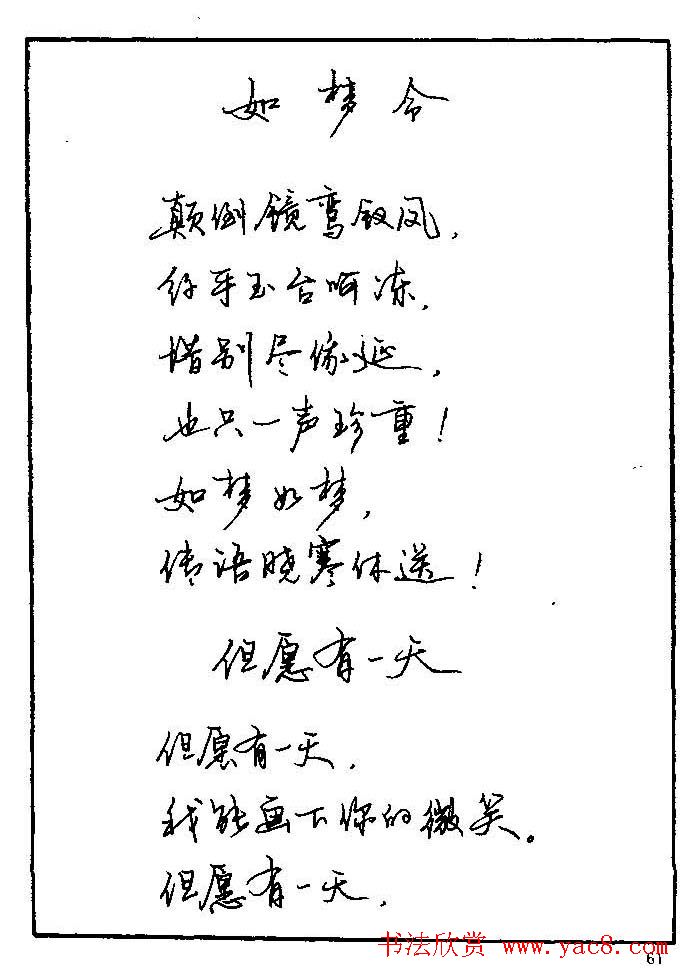 如梦令
颠倒镜鸾钗凤，
纤手玉台呵冻，
惜别尽俄延，
也只一声珍重！
如梦如梦，
传语晓寒休送！
但愿有一天
但愿有一天，
我能画下你的微笑。
但愿有一天，
书法欣赏 www.yac8.com
61